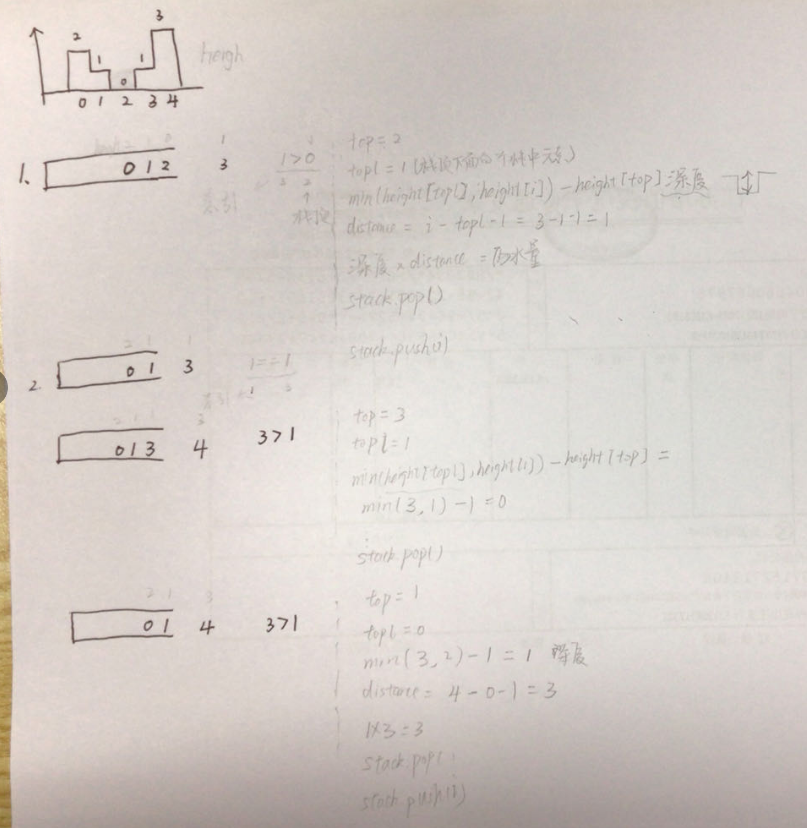 3
2
1 1
0
heigh
0 1 2 3 4
top = 2
1. 0 1 2 3 1>0 top1 = 1 (栈顶下面的一个栈中元素)
3 2
↑
索引 栈顶
min(height[top1], height[i]) - height[top] 深度
distance = i - top1 - 1 = 3-1-1 = 1
深度 × distance = 雨水量
stack.pop()
stack.push(i)
2 1 1
2. 0 1 3 1==1
索引
2 1 1 3
0 1 3 4 3>1
top = 3
top1 = 1
min(height[top1], height[i]) - height[top] =
min(3, 1) - 1 = 0
stack.pop()
2 1 3
0 1 4 3>1
top = 1
top1 = 0
min(3, 2) - 1 = 1 深度
distance = 4 - 0 - 1 = 3
1×3 = 3
stack.pop(
stack.push(i)